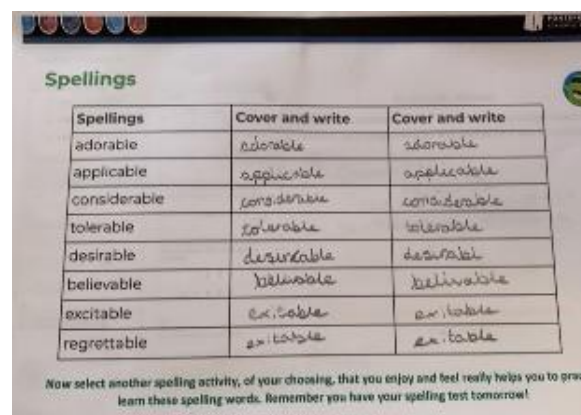 Spellings
Spellings Cover and write Cover and write
adorable adorable adorable
applicable applicable applicable
considerable considerable considerable
tolerable tolerable tolerable
desirable desireable desirabl
believable belivable belivable
excitable exitable exitable
regrettable exitable exitable
Now select another spelling activity, of your choosing, that you enjoy and feel really helps you to
learn these spelling words. Remember you have your spelling test tomorrow!